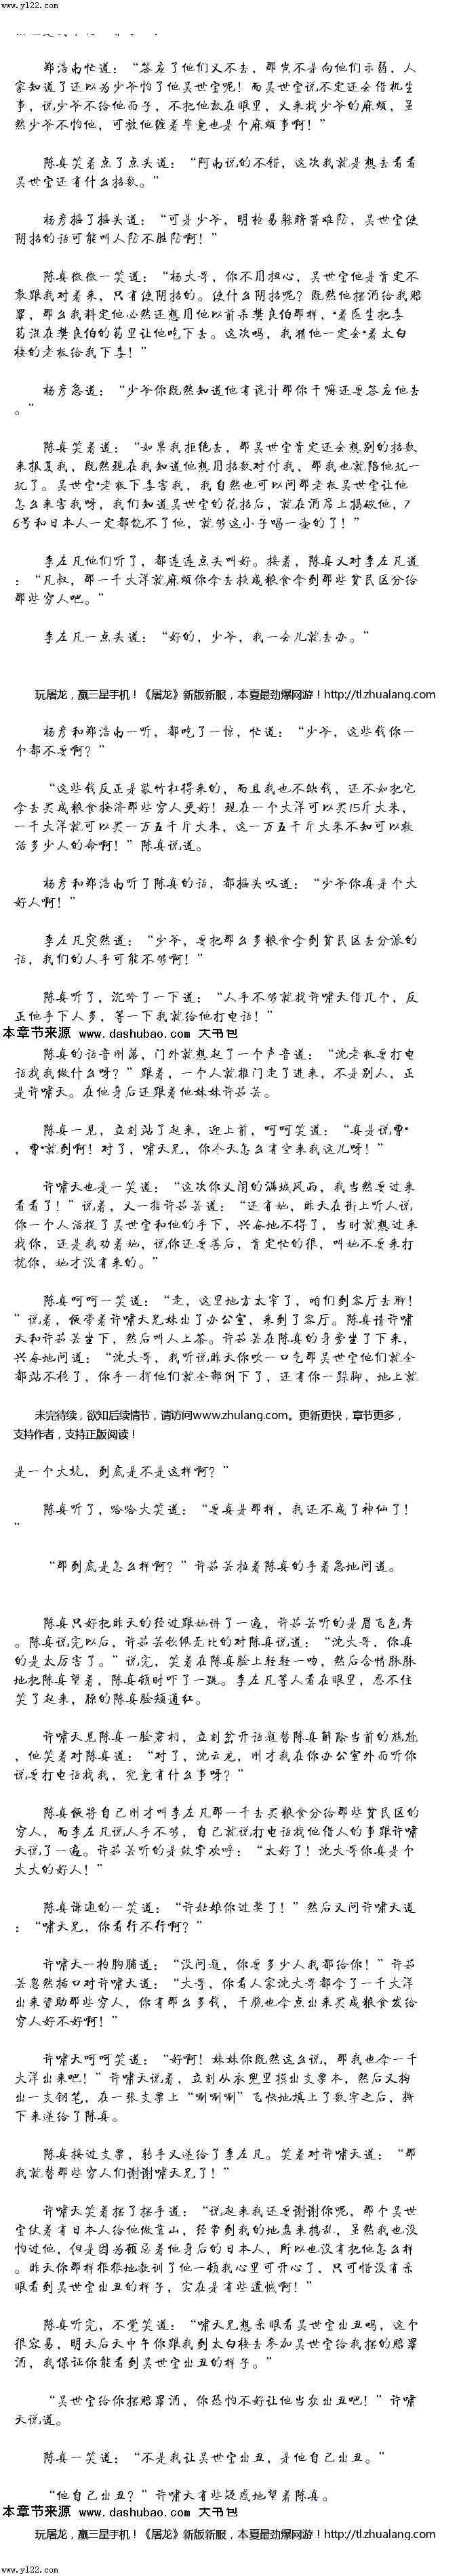 www.yl22.com
郑浩南忙道：“答应了他们又不去，那岂不是向他们示弱，人
家知道了还以为少爷怕了他吴世宝呢！而吴世宝说不定还会借机生
事，说少爷不给他面子，不把他放在眼里，又来找少爷的麻烦，虽
然少爷不怕他，可被他缠着毕竟也是个麻烦事啊！”
陈真笑着点了点头道：“阿南说的不错，这次我就是想去看看
吴世宝还有什么招数。”
杨彦摇了摇头道：“可是少爷，明枪易躲暗箭难防，吴世宝使
阴招的话可能叫人防不胜防啊！”
陈真微微一笑道：“杨大哥，你不用担心，吴世宝他是肯定不
敢跟我对着来，只有使阴招的。使什么阴招呢？既然他摆酒给我赔
罪，那么我料定他必然还想用他以前杀樊良伯那样，*着医生把毒
药混在樊良伯的药里让他吃下去。这次吗，我猜他一定会*着太白
楼的老板给我下毒！”
杨彦急道：“少爷你既然知道他有诡计那你干嘛还要答应他去
。”
陈真笑着道：“如果我拒绝去，那吴世宝肯定还会想别的招数
来报复我，既然现在我知道他想用招数对付我，那我也就陪他玩一
玩了。吴世宝*老板下毒害我，我自然也可以问那老板吴世宝让他
怎么来害我呀，我们知道吴世宝的花招后，就在酒席上揭破他，7
6号和日本人一定都饶不了他，就够这小子喝一壶的了！”
李左凡他们听了，都连连点头叫好。接着，陈真又对李左凡道
：“凡叔，那一千大洋就麻烦你拿去换成粮食拿到那些贫民区分给
那些穷人吧。”
李左凡一点头道：“好的，少爷，我一会儿就去办。”
玩屠龙，赢三星手机！《屠龙》新版新服，本夏最劲爆网游！http://tl.zhualang.com
杨彦和郑浩南一听，都吃了一惊，忙道：“少爷，这些钱你一
个都不要啊？”
“这些钱反正是敲竹杠得来的，而且我也不缺钱，还不如把它
拿去买成粮食接济那些穷人更好！现在一个大洋可以买15斤大米，
一千大洋就可以买一万五千斤大米，这一万五千斤大米不知可以救
活多少人的命啊！”陈真说道。
杨彦和郑浩南听了陈真的话，都摇头叹道：“少爷你真是个大
好人啊！”
李左凡突然道：“少爷，要把那么多粮食拿到贫民区去分派的
话，我们的人手可能不够啊！”
陈真听了，沉吟了一下道：“人手不够就找许啸天借几个，反
正他手下人多，等一下我就给他打电话！”
本章节来源 www.dashubao.com 大书包
陈真的话音刚落，门外就想起了一个声音道：“沈老板要打电
话找我做什么呀？”跟着，一个人就推门走了进来，不是别人，正
是许啸天。在他身后还跟着他妹妹许茹芸。
陈真一见，立刻站了起来，迎上前，呵呵笑道：“真是说曹*
，曹*就到啊！对了，啸天兄，你今天怎么有空来我这儿呀！”
许啸天也是一笑道：“这次你又闹的满城风雨，我当然要过来
看看了！”说着，又一指许茹芸道：“还有她，昨天在街上听人说
你一个人活捉了吴世宝和他的手下，兴奋地不得了，当时就想过来
找你，还是我劝着她，说你还要善后，肯定忙的很，叫她不要来打
扰你，她才没有来的。”
陈真呵呵一笑道：“走，这里地方太窄了，咱们到客厅去聊！
”说着，便带着许啸天兄妹出了办公室，来到了客厅。陈真请许啸
天和许茹芸坐下，然后叫人上茶。许茹芸在陈真的身旁坐了下来，
兴奋地问道：“沈大哥，我听说昨天你吹一口气那吴世宝他们就全
都站不稳了，你手一挥他们就全部倒下了，还有你一跺脚，地上就
未完待续，欲知后续情节，请访问www.zhulang.com。更新更快，章节更多，
支持作者，支持正版阅读！
是一个大坑，到底是不是这样啊？”
陈真听了，哈哈大笑道：“要真是那样，我还不成了神仙了！
”
“那到底是怎么样啊？”许茹芸拉着陈真的手着急地问道。
陈真只好把昨天的经过跟她讲了一遍，许茹芸听的是眉飞色舞
。陈真说完以后，许茹芸钦佩无比的对陈真说道：“沈大哥，你真
的是太厉害了。”说完，笑着在陈真脸上轻轻一吻，然后含情脉脉
地把陈真望着，陈真顿时吓了一跳。李左凡等人看在眼里，忍不住
笑了起来，臊的陈真脸颊通红。
许啸天见陈真一脸窘相，立刻岔开话题替陈真解除当前的尴尬
，他笑着对陈真道：“对了，沈云龙，刚才我在你办公室外面听你
说要打电话找我，究竟有什么事呀？”
陈真便将自己刚才叫李左凡那一千去买粮食分给那些贫民区的
穷人，而李左凡说人手不够，自己就说打电话找他借人的事跟许啸
天说了一遍。许茹芸听的是鼓掌欢呼：“太好了！沈大哥你真是个
大大的好人！”
陈真谦逊的一笑道：“许姑娘你过奖了！”然后又问许啸天道
：“啸天兄，你看行不行啊？”
许啸天一拍胸脯道：“没问道，你要多少人我都给你！”许茹
芸忽然插口对许啸天道：“大哥，你看人家沈大哥都拿了一千大洋
出来资助那些穷人，你有那么多钱，干脆也拿点出来买成粮食发给
穷人好不好啊！”
许啸天呵呵笑道：“好啊！妹妹你既然这么说，那我也拿一千
大洋出来吧！”许啸天说着，立刻从衣兜里摸出支票本，然后又掏
出一支钢笔，在一张支票上“唰唰唰”飞快地填上了数字之后，撕
下来递给了陈真。
陈真接过支票，转手又递给了李左凡。笑着对许啸天道：“那
我就替那些穷人们谢谢啸天兄了！”
许啸天笑着摆了摆手道：“说起来我还要谢谢你呢，那个吴世
宝仗着有日本人给他做靠山，经常到我的地盘来捣乱，虽然我也没
怕过他，但是因为顾忌着他身后的日本人，所以也没有把他怎么样
。昨天你那样狠狠地教训了他一顿我心里可开心了，只可惜没有亲
眼看到吴世宝出丑的样子，实在是有些遗憾啊！”
陈真听完，不觉笑道：“啸天兄想亲眼看吴世宝出丑吗，这个
很容易，明天后天中午你跟我到太白楼去参加吴世宝给我摆的赔罪
酒，我保证你能看到吴世宝出丑的样子。”
“吴世宝给你摆赔罪酒，你恐怕不好让他当众出丑吧！”许啸
天说道。
陈真一笑道：“不是我让吴世宝出丑，是他自己出丑。”
“他自己出丑？”许啸天有些疑惑地望着陈真。
本章节来源 www.dashubao.com 大书包
玩屠龙，赢三星手机！《屠龙》新版新服，本夏最劲爆网游！http://tl.zhualang.com
www.yl22.com